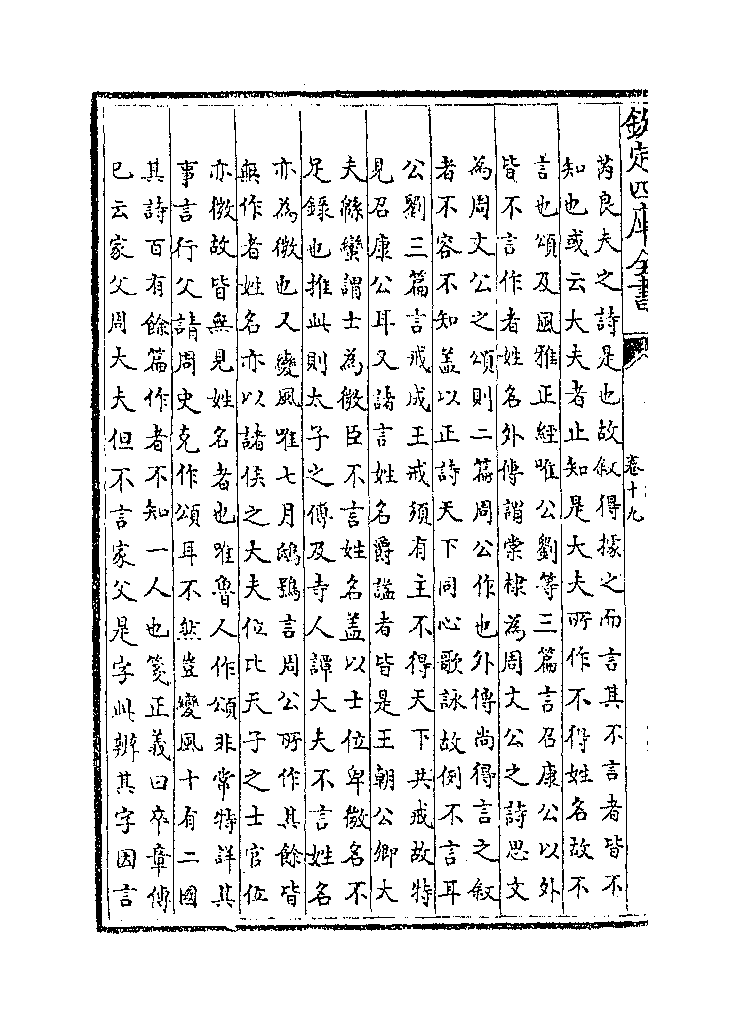 欽定四庫全書
卷十九
芮良夫之詩是也故叙得據之而言其不言者皆不
知也或云大夫者止知是大夫所作不得姓名故不
言也頌及風雅正經唯公劉等三篇言召康公以外
皆不言作者姓名外傳謂棠棣為周文公之詩思文
為周文公之頌則二篇周公作也外傳尚得言之叙
者不容不知蓋以正詩天下同心歌詠故例不言耳
公劉三篇言戒成王戒須有主不得天下共戒故特
見召康公耳又諸言姓名爵諡者皆是王朝公卿大
夫緜蠻謂士為微臣不言姓名蓋以士位卑微名不
足錄也推此則太子之傅及寺人譚大夫不言姓名
亦為微也又變風唯七月鴟鴞言周公所作其餘皆
無作者姓名亦以諸侯之大夫位比天子之士官位
亦微故皆無見姓名者也唯魯人作頌非常特詳其
事言行父請周史克作頌耳不然豈變風十有二國
其詩百有餘篇作者不知一人也箋正義曰卒章傳
已云家父周大夫但不言家父是字此辨其字因言